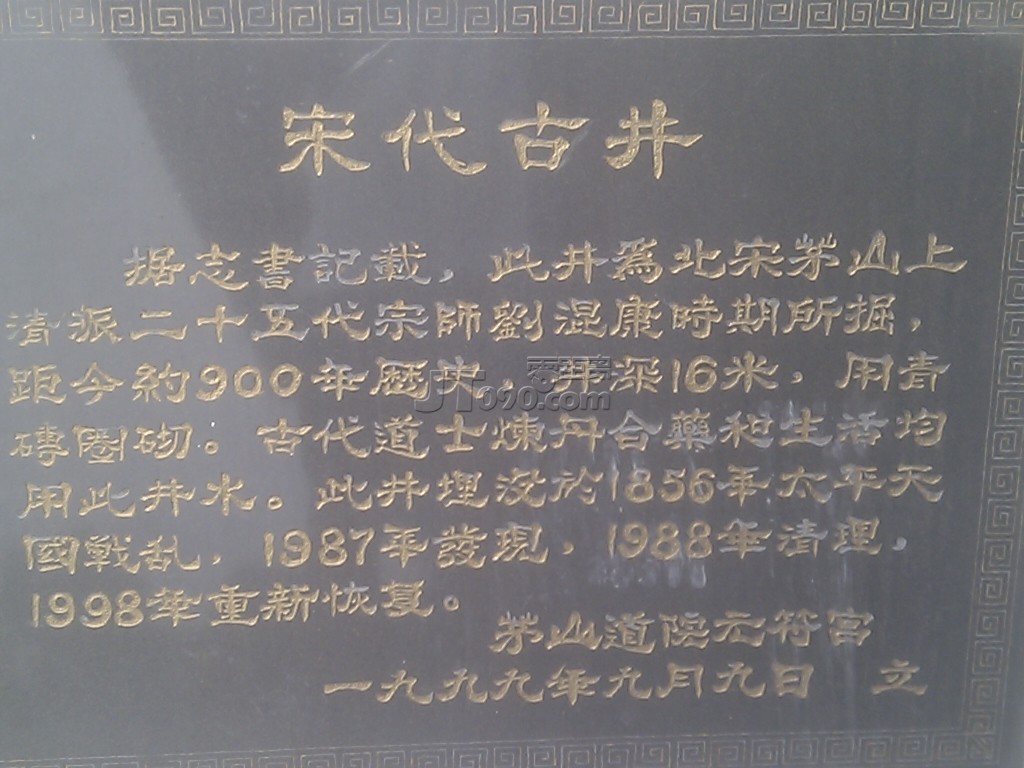 宋代古井
据志書記載，此井為北宋茅山上
清派二十五代宗師劉混康時期所掘，
距今約900年歷史，井深16米，用青
磚圈砌。古代道士煉丹合藥和生活均
用此井水。此井埋没於1856年太平天
國戰乱，1987年發現，1988年清理，
1998年重新恢复。
茅山道院元符宮
一九九九年九月九日 立
JT090.com